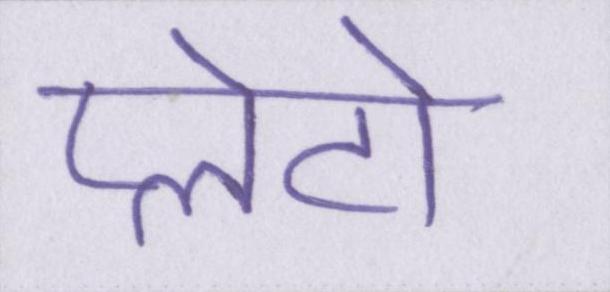 प्लेटो